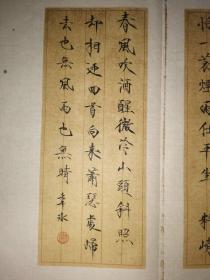 怕一蓑煙雨任平生料峭
春風吹酒醒微冷山頭斜照
却相迎回首向来蕭瑟處歸
去也無風雨也無晴